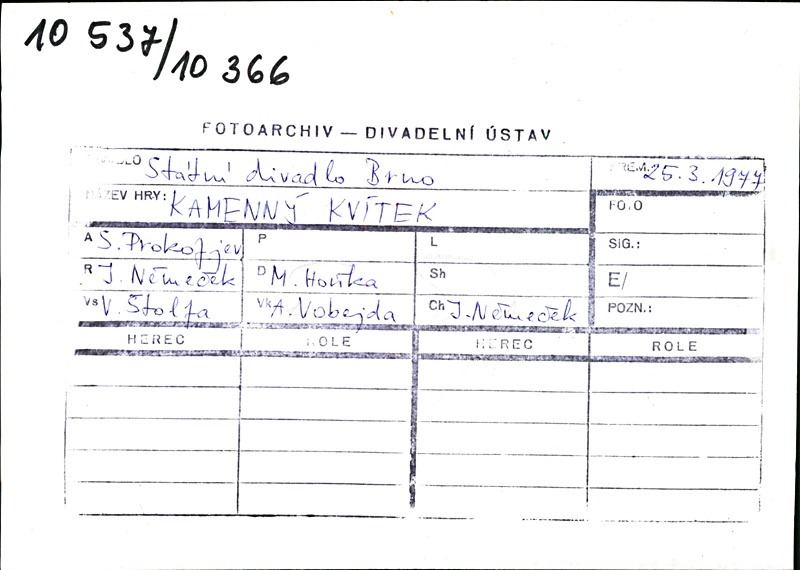 10 537/10 366
FOTOARCHIV — DIVADELNÍ ÚSTAV
DIVADLO Státní divadlo Brno PREM. 25.3.1977
NÁZEV HRY: KAMENNÝ KVÍTEK FOTO
A S. Prokofjev P L SIG.:
R J. Němeček D M. Hoříka Sh E/
Vs V. Štolfa Vk A. Vobejda Ch J. Němeček POZN.:
HEREC ROLE HEREC ROLE